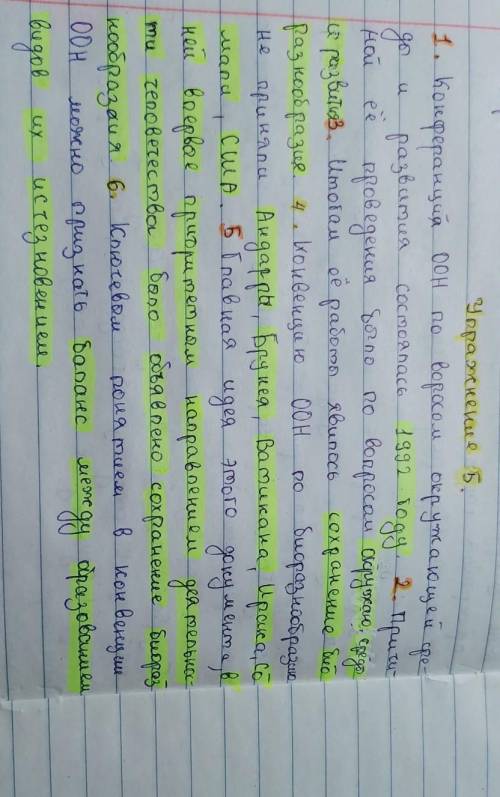 Упражнение Б.
1. Конференций ООН по воросом окружающей сре-
ды и развития состоялась 1992 году 2. Причи-
ной её проведения было по вопросам окружаю, среде
и развитоз. Итогом её работы явилось сохранение био
разнообразие 4. Конвенцию ООН по биоразнообразию
не приняли Андарры, Брунея, Ватикана, Ирака, Со
мали, США. 5 Главная идея этого документа, в
ней впервое приоритетном направлением деятельнос-
ти человечества было объявлено сохранение биораз
нообразия 6. Ключевом понятием в конвенции
ООН можно признать баланс между образованием
видов их истезновением.